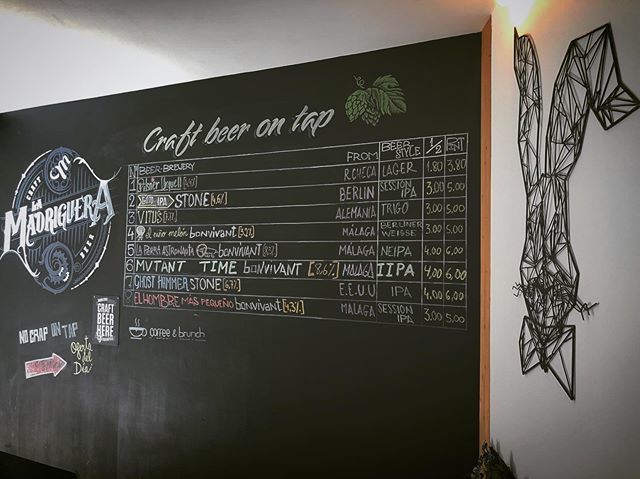 Craft beer on tap
Nº BEER-BREWERY FROM BEER STYLE 1/2 PINT
1 Pilsner Urquell R.CHECA LAGER 1.80 3.80
2 IPA STONE BERLIN SESSION IPA 3.00 5.00
3 VITUS ALEMANIA TRIGO 3.00 5.00
4 el niño melón bonvivant MÁLAGA BERLINER WEISSE 3.00 5.00
5 LA PERRA ASTRONAUTA bonvivant MÁLAGA NEIPA 4.00 6.00
6 MUTANT TIME bonvivant [8.6%] MALAGA IIPA 4.00 6.00
7 GHOST HAMMER STONE E.E.U.U IPA 4.00 6.00
8 EL HOMBRE MÁS PEQUEÑO bonvivant MALAGA SESSION IPA 3.00 5.00
coffee & brunch
LA
MADRIGUERA
CRAFT BEER
NO CRAP ON TAP
Oferta
del
Día
CRAFT
BEER
HERE